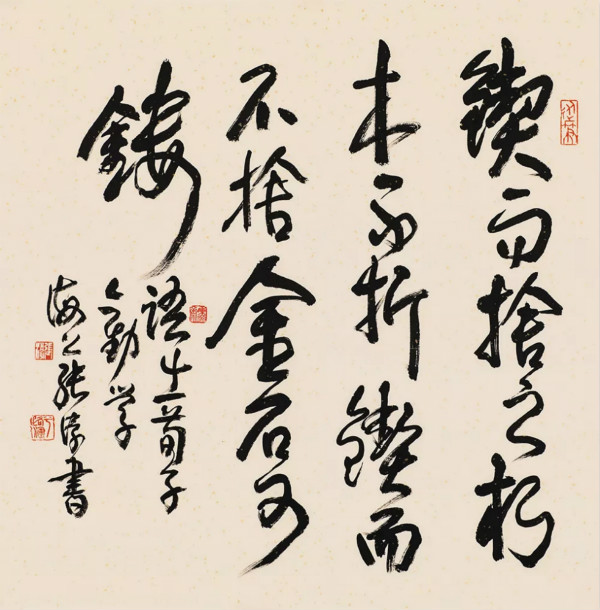 鍥而捨之朽
木不折鍥而
不捨金石可
鏤
語出荀子
学
海上張書